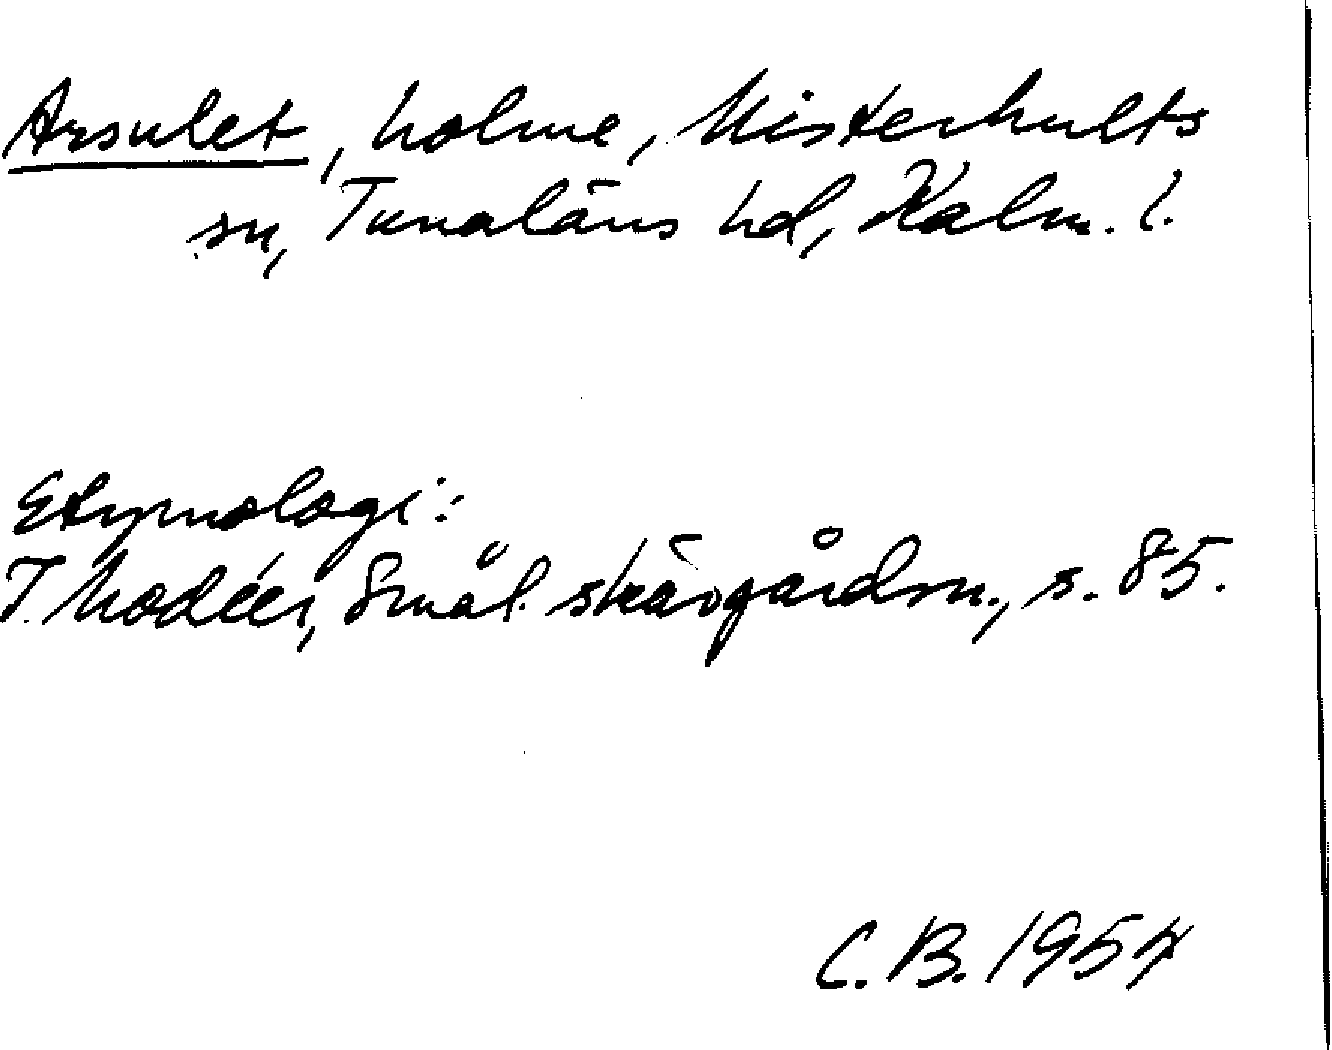 Arsulet, holme, Misterhults
sn, Tunaläns hd, Kalm. l.
Etymologi:
I. Modéer, Smål. skärgårdsn., s. 85.
C. B. 1957